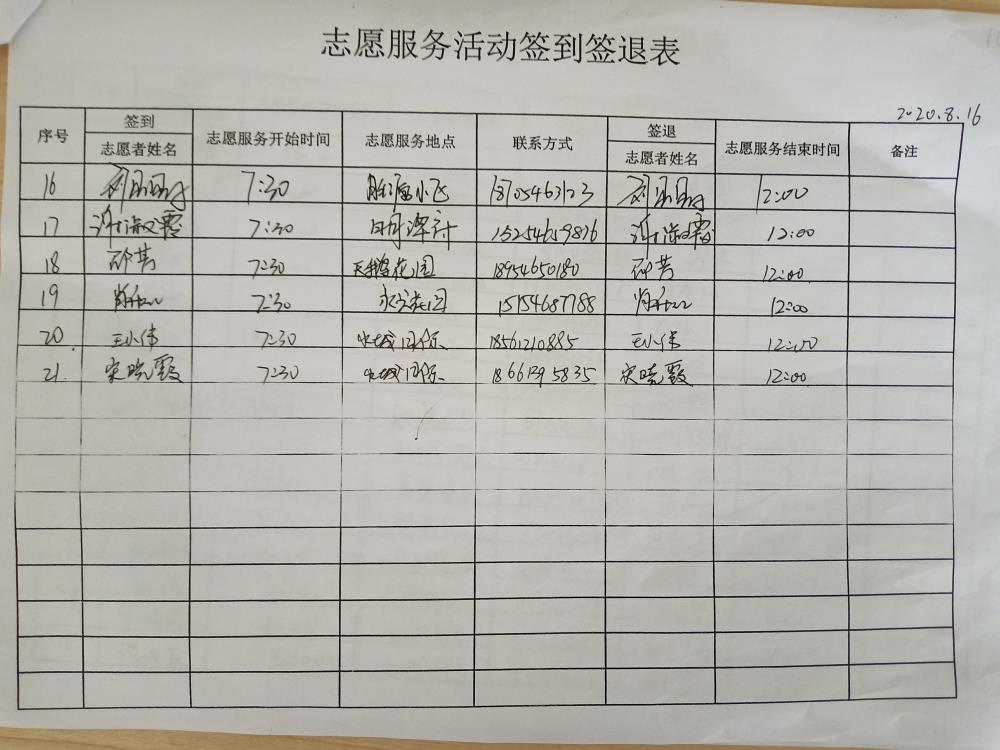 志愿服务活动签到签退表
2020.8.16
序号 签到 志愿者姓名 志愿服务开始时间 志愿服务地点 联系方式 签退 志愿者姓名 志愿服务结束时间 备注
16 7:30 18705463123 12:00
17 谢淑霞 7:30 15254659876 谢淑霞 12:00
18 7:30 天鹅花园 18954650180 12:00
19 7:30 花园 15154687788 12:00
20 王小伟 7:30 18561210885 王小伟 12:00
21. 宋晓霞 7:30 18661395835 宋晓霞 12:00